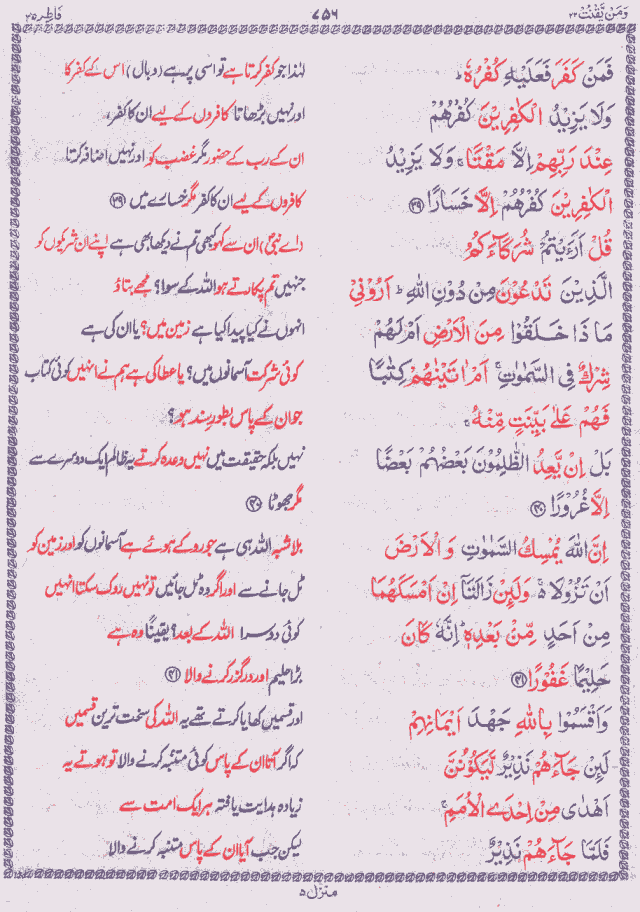 وَمَنْ يَّقْنُتْ ۲۲
۷۵۶
فَاطِر ۳۵
فَمَنْ كَفَرَ فَعَلَيْهِ كُفْرُهٗ ؕ
لہٰذا جو کفر کرتا ہے تو اسی پر ہے (وبال) اس کے کفر کا
وَلَا يَزِيْدُ الْكٰفِرِيْنَ كُفْرُهُمْ
اور نہیں بڑھاتا کافروں کے لیے ان کا کفر،
عِنْدَ رَبِّهِمْ اِلَّا مَقْتًا ۚ وَلَا يَزِيْدُ
ان کے رب کے حضور مگر غضب کو اور نہیں اضافہ کرتا
الْكٰفِرِيْنَ كُفْرُهُمْ اِلَّا خَسَارًا ﴿۳۹﴾
کافروں کے لیے ان کا کفر مگر خسارے میں ﴿۳۹﴾
قُلْ اَرَءَيْتُمْ شُرَكَآءَكُمُ
(اے نبیؐ) ان سے کہو کبھی تم نے دیکھا بھی ہے اپنے ان شریکوں کو
الَّذِيْنَ تَدْعُوْنَ مِنْ دُوْنِ اللّٰهِ ؕ اَرُوْنِيْ
جنہیں تم پکارتے ہو اللہ کے سوا؟ مجھے بتاؤ
مَاذَا خَلَقُوْا مِنَ الْاَرْضِ اَمْ لَهُمْ
انہوں نے کیا پیدا کیا ہے زمین میں؟ یا ان کی ہے
شِرْكٌ فِي السَّمٰوٰتِ ۚ اَمْ اٰتَيْنٰهُمْ كِتٰبًا
کوئی شرکت آسمانوں میں؟ یا عطا کی ہے ہم نے انہیں کوئی کتاب
فَهُمْ عَلٰى بَيِّنَتٍ مِّنْهُ ۚ
جو ان کے پاس بطور سند ہو؟
بَلْ اِنْ يَّعِدُ الظّٰلِمُوْنَ بَعْضُهُمْ بَعْضًا
نہیں بلکہ حقیقت میں نہیں وعدہ کرتے یہ ظالم ایک دوسرے سے
اِلَّا غُرُوْرًا ﴿۴۰﴾
مگر جھوٹا ﴿۴۰﴾
اِنَّ اللّٰهَ يُمْسِكُ السَّمٰوٰتِ وَالْاَرْضَ
بلاشبہ اللہ ہی ہے جو روکے ہوئے ہے آسمانوں کو اور زمین کو
اَنْ تَزُوْلَا ۚ وَلَئِنْ زَالَتَاۤ اِنْ اَمْسَكَهُمَا
ٹل جانے سے اور اگر وہ ٹل جائیں تو نہیں روک سکتا انہیں
مِنْ اَحَدٍ مِّنْۢ بَعْدِهٖ ؕ اِنَّهٗ كَانَ
کوئی دوسرا اللہ کے بعد؟ یقیناً وہ ہے
حَلِيْمًا غَفُوْرًا ﴿۴۱﴾
بڑا حلیم اور درگزر کرنے والا ﴿۴۱﴾
وَاَقْسَمُوْا بِاللّٰهِ جَهْدَ اَيْمَانِهِمْ
اور قسمیں کھایا کرتے تھے یہ اللہ کی سخت ترین قسمیں
لَئِنْ جَآءَهُمْ نَذِيْرٌ لَّيَكُوْنُنَّ
کہ اگر آتا ان کے پاس کوئی متنبّہ کرنے والا تو ہوتے یہ
اَهْدٰى مِنْ اِحْدَى الْاُمَمِ ۚ
زیادہ ہدایت یافتہ ہر ایک امت سے
فَلَمَّا جَآءَهُمْ نَذِيْرٌ
لیکن جب آیا ان کے پاس متنبّہ کرنے والا
منزل ۵